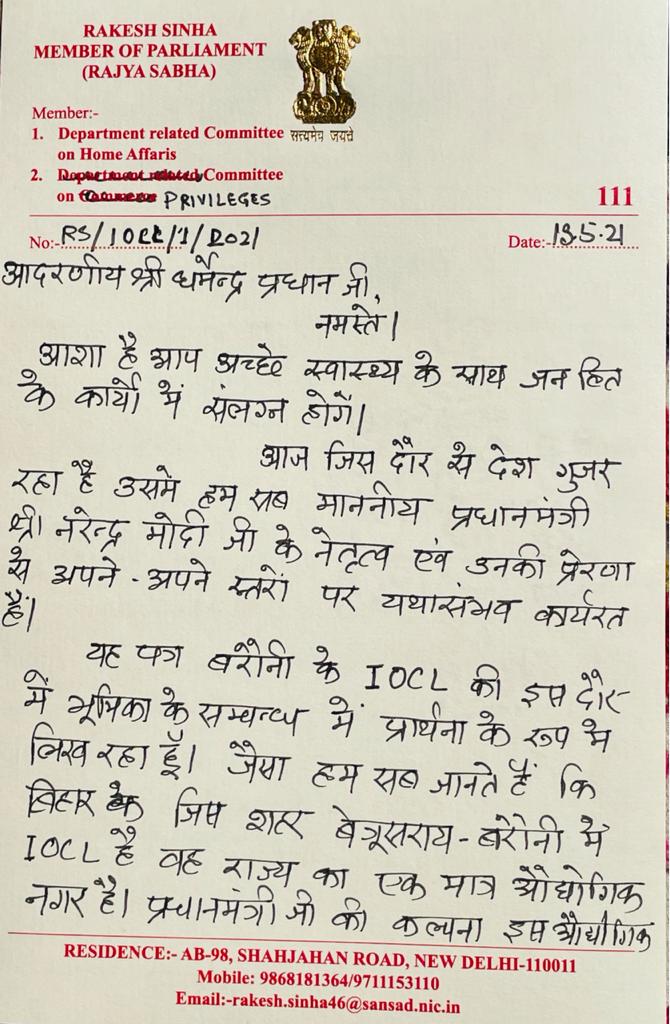 RAKESH SINHA
MEMBER OF PARLIAMENT
(RAJYA SABHA)
सत्यमेव जयते
Member:-
1. Department related Committee
on Home Affaris
2. Department related Committee
on Commerce PRIVILEGES
111
No:- RS/IOCL/1/2021
Date:- 13.5.21
आदरणीय श्री धर्मेन्द्र प्रधान जी,
नमस्ते।
आशा है आप अच्छे स्वास्थ्य के साथ जन हित
के कार्यों में संलग्न होगें।
आज जिस दौर से देश गुजर
रहा है उसमे हम सब माननीय प्रधानमंत्री
श्री नरेन्द्र मोदी जी के नेतृत्व एवं उनकी प्रेरणा
से अपने-अपने स्तरों पर यथासंभव कार्यरत
हैं।
यह पत्र बरौनी के IOCL की इस दौर
में भूमिका के सम्बन्ध में प्रार्थना के रूप मे
लिख रहा हूँ। जैसा हम सब जानते हैं कि
बिहार के जिस शहर बेगूसराय-बरौनी में
IOCL है वह राज्य का एक मात्र औद्योगिक
नगर है। प्रधानमंत्री जी की कल्पना इस औद्योगिक
RESIDENCE:- AB-98, SHAHJAHAN ROAD, NEW DELHI-110011
Mobile: 9868181364/9711153110
Email:-rakesh.sinha46@sansad.nic.in